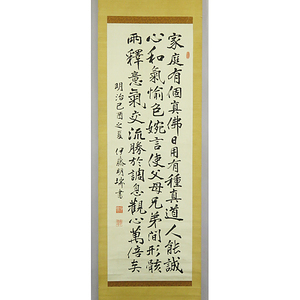 家庭有個真佛日用有種真道人能誠
心和氣愉色婉言使父母兄弟間形骸
兩釋意氣交流勝於調息觀心萬倍矣
明治己酉之夏 伊藤明瑞書